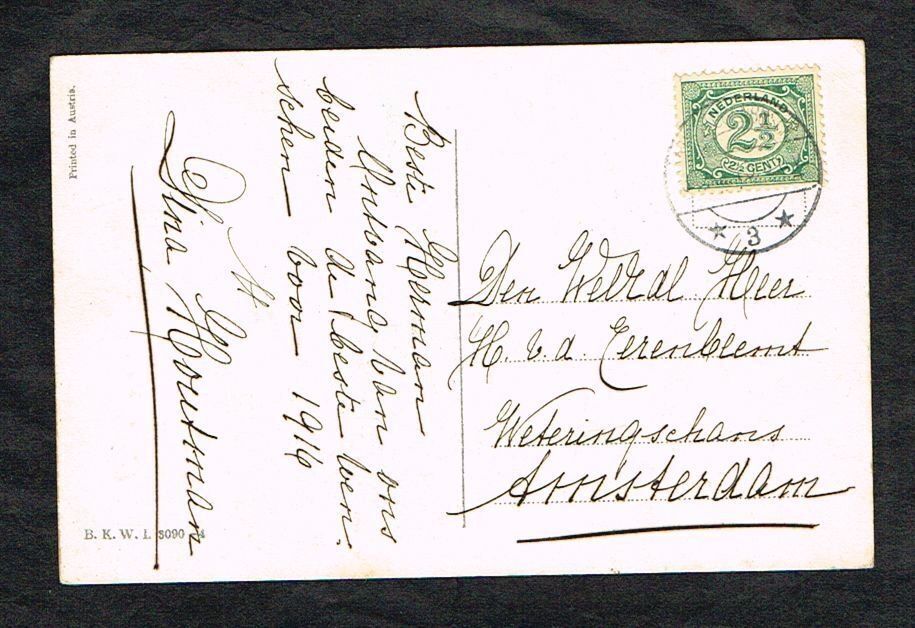 Printed in Austria.
Beste Herman
Ontvang van ons
beiden de beste wen-
schen voor 1916
H
Dina Houtman
B. K. W. I. 3090
NEDERLAND
2 1/2
2½ CENT
3
Den WelEd Heer
H. v. d. Eerenbemt
Weteringschans
Amsterdam